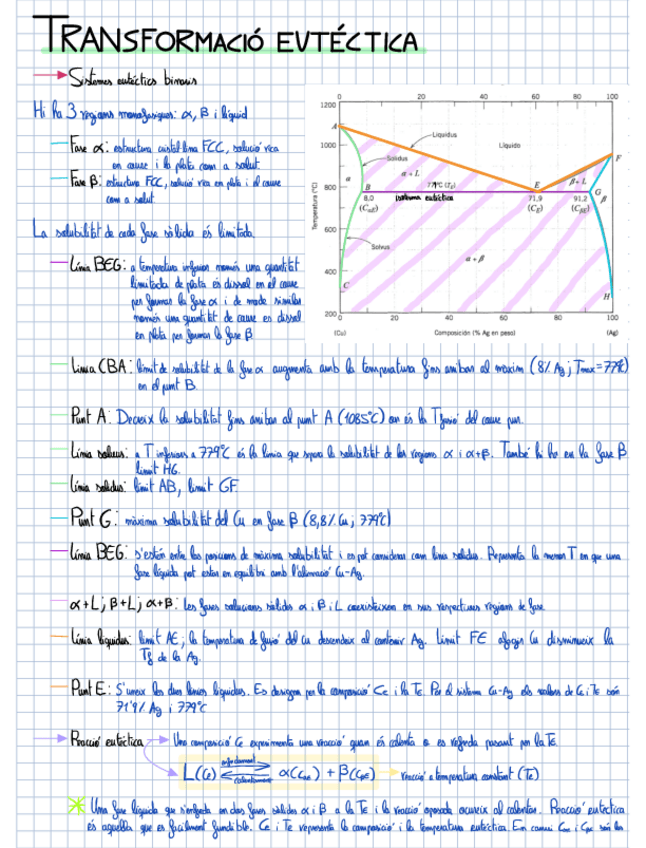 TRANSFORMACIÓ EUTÉCTICA
Sistemes eutéctics binaris
Hi ha 3 regions monofàsiques: α, β i líquid
Fase α: estructura cristal·lina FCC, solució rica
en coure i la plata com a solut.
Fase β: estructura FCC, solució rica en plata i el coure
com a solut
La solubilitat de cada fase sòlida és limitada.
Línia BEG: a temperatura inferior només una quantitat
limitada de plata es dissol en el coure
per formar la fase α i de mode similar
només una quantitat de coure es dissol
en plata per formar la fase β
0 20 40 60 80 100
1200
1000
800
600
400
200
Temperatura (°C)
A
Liquidus
Líquido
F
Solidus
α + L
α
779°C (TE)
E
β + L
B
G
β
8,0
(CαE)
sistema eutéctic
71,9
(CE)
91,2
(CβE)
Solvus
α + β
C
H
0 20 40 60 80 100
(Cu)
Composición (% Ag en peso)
(Ag)
Línia CBA: límit de solubilitat de la fase α augmenta amb la temperatura fins arribar al màxim (8% Ag ; Tmax = 779°C)
en el punt B.
Punt A: Decreix la solubilitat fins arribar al punt A (1085°C) on és la Tfusió del coure pur.
Línia solvus: a T inferiors a 779°C és la línia que separa la solubilitat de les regions α i α+β. També hi ha en la fase β
límit HG.
Línia solidus: límit AB, límit GF
Punt G: màxima solubilitat del Cu en fase β (8,8% Cu ; 779°C)
Línia BEG: s'estén entre les posicions de màxima solubilitat i es pot considerar com línia solidus. Representa la menor T en que una
fase líquida pot estar en equilibri amb l'aleació Cu-Ag.
α+L; β+L; α+β: Les fases solucions sòlides α i β i L coexisteixen en sus respectives regions de fase.
Línia liquidus: límit AE, la temperatura de fusió del Cu descendeix al contenir Ag. Límit FE afegir Cu disminueix la
Tf de la Ag.
Punt E: S'uneix les dues línies liquidus. Es designa per la composició CE i la TE. Per el sistema Cu-Ag els valors de CE i TE són
71'9% Ag i 779°C
Reacció eutéctica → Una composició CE experimenta una reacció quan és calenta o es refreda passant por la TE
refredament
L(CE) ⇌ α(CαE) + β(CβE) → reacció a temperatura constant (TE)
calentament
Una fase líquida que s'enfreda en dos fases sòlides α i β a la TE i la reacció oposada ocurreix al calentar. Reacció eutéctica
és aquella que es fàcilment fundible. CE i TE representa la composició i la temperatura eutéctica. En canvi CαE i CβE són les